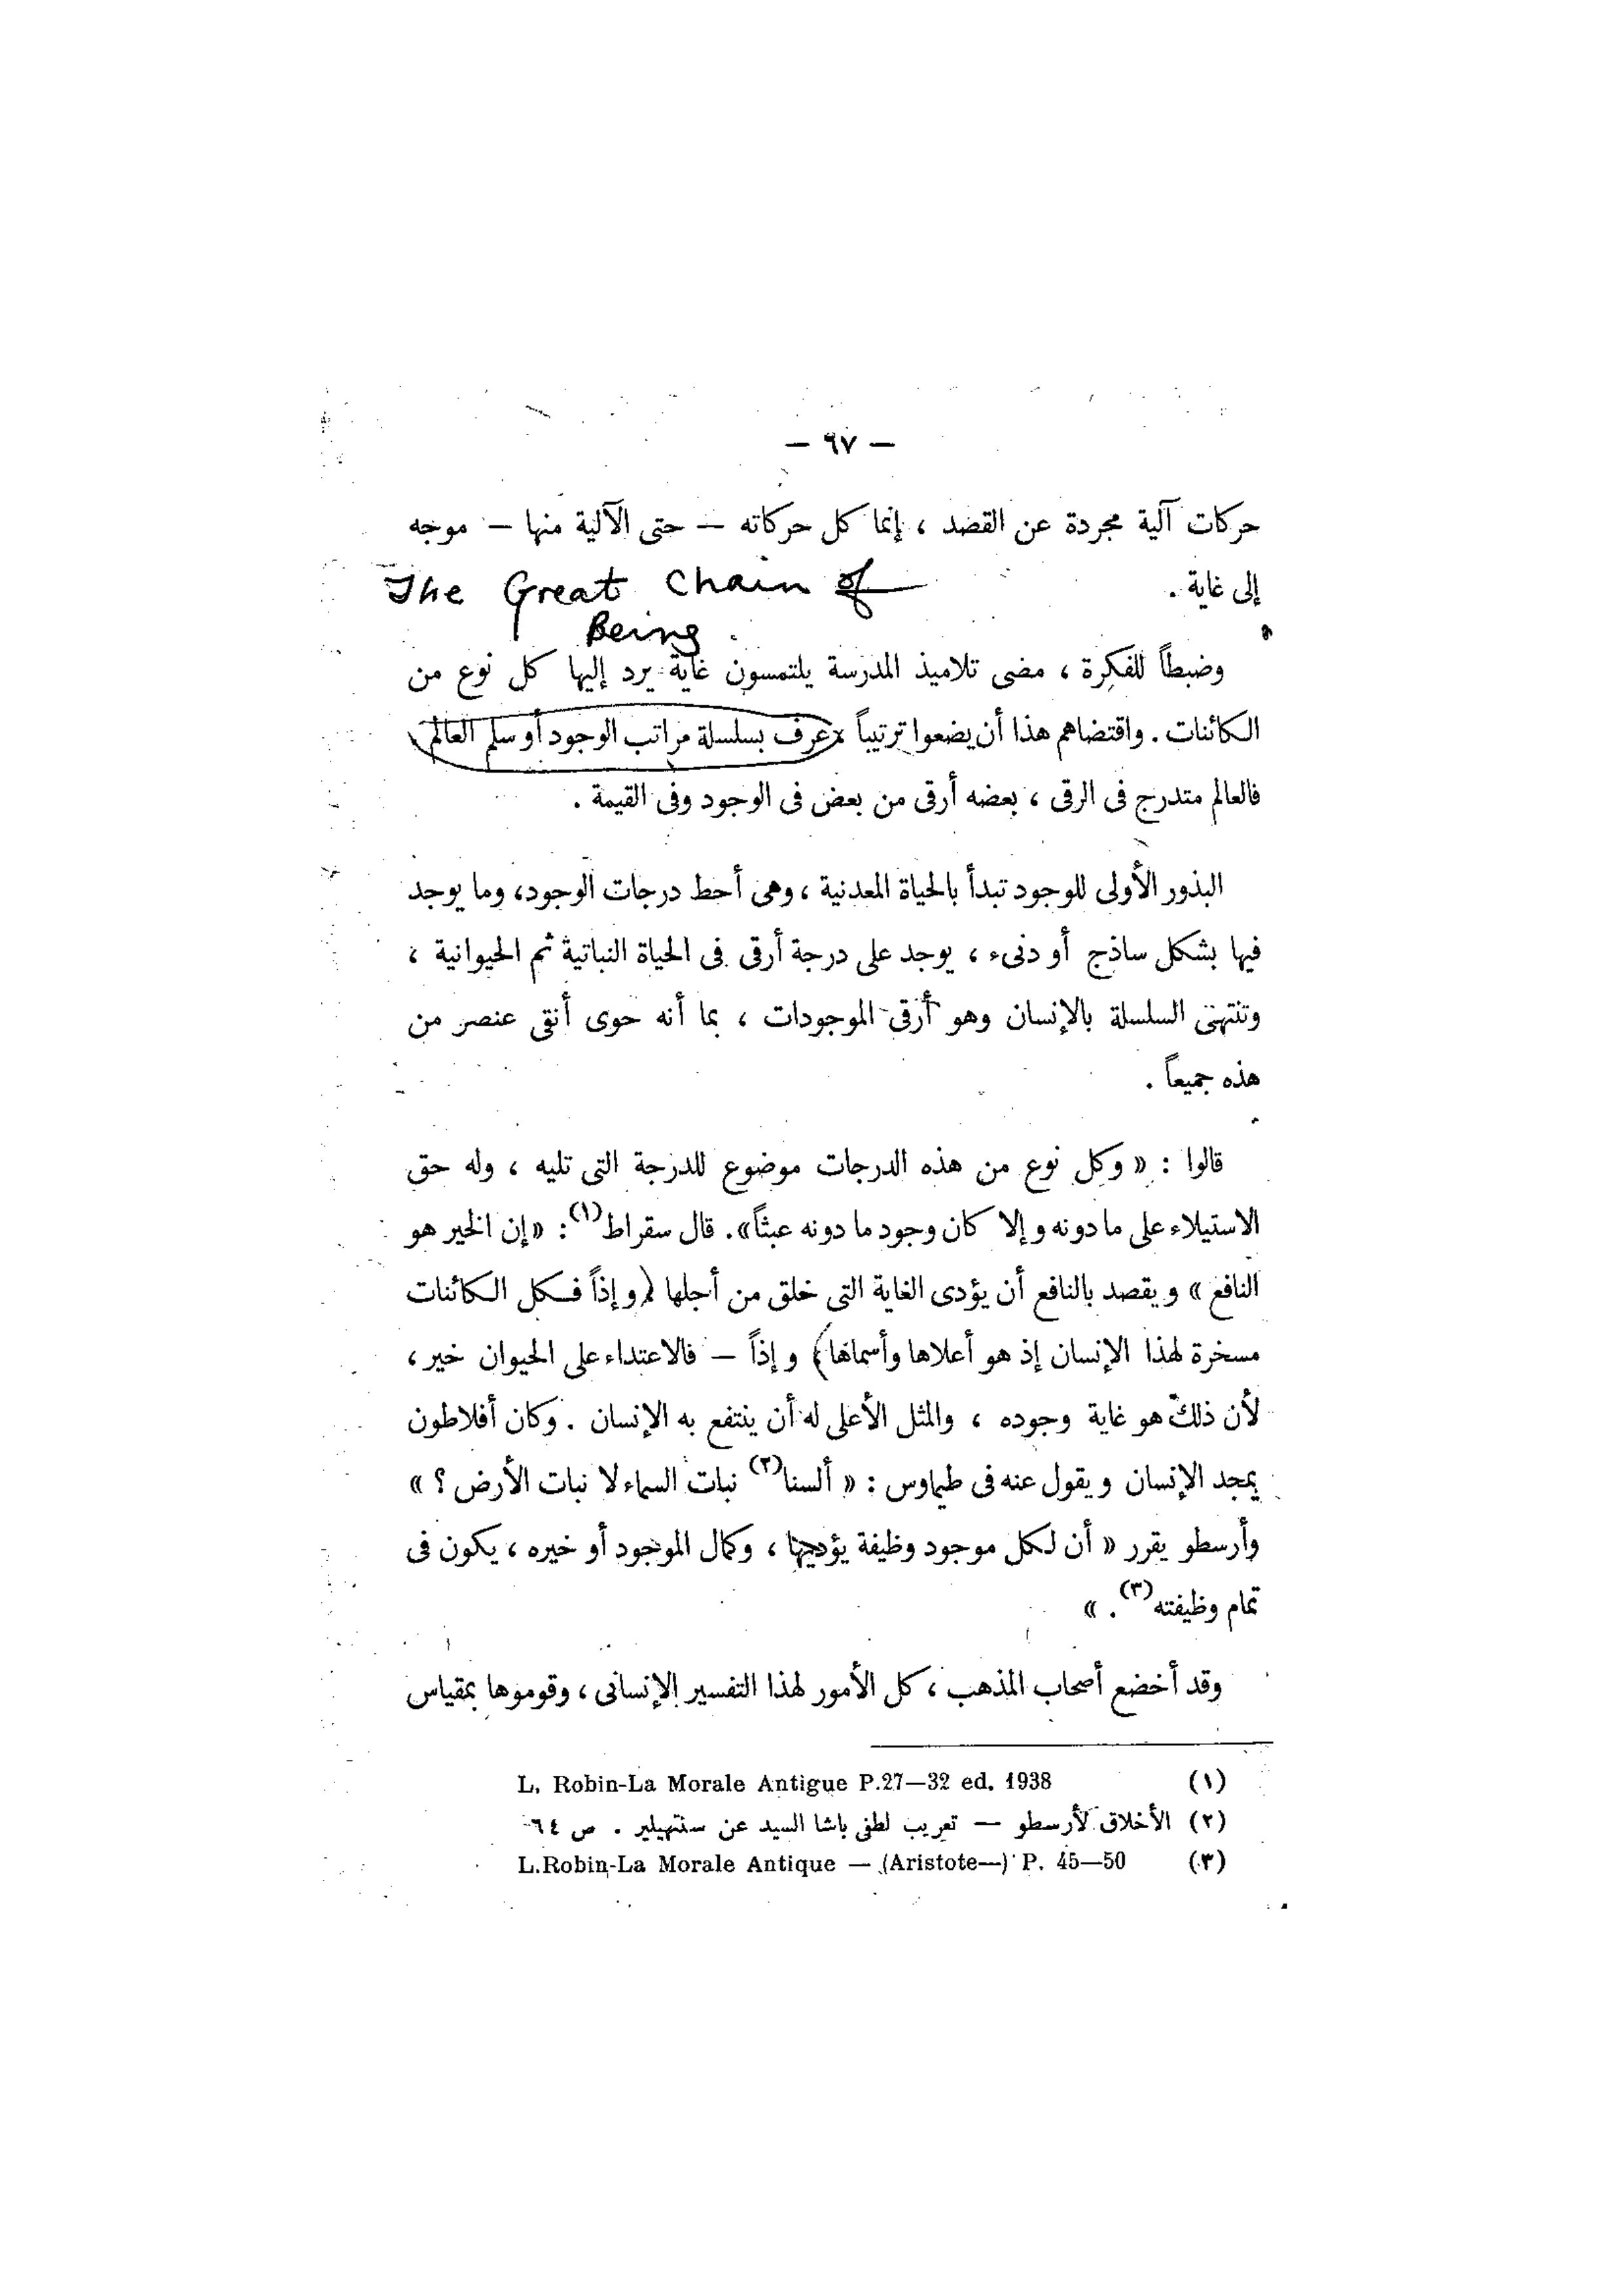 — ٦٧ —
حركات آلية مجردة عن القصد ، إنما كل حركاته — حتى الآلية منها — موجه
إلى غاية .
The Great Chain of
Being .
وضبطاً للفكرة ، مضى تلاميذ المدرسة يلتمسون غاية يرد إليها كل نوع من
الكائنات . واقتضاهم هذا أن يضعوا ترتيباً عرف بسلسلة مراتب الوجود أو سلم العالم
فالعالم متدرج فى الرقى ، بعضه أرقى من بعض فى الوجود وفى القيمة .
البذور الأولى للوجود تبدأ بالحياة المعدنية ، وهى أحط درجات الوجود، وما يوجد
فيها بشكل ساذج أو دنىء ، يوجد على درجة أرقى فى الحياة النباتية ثم الحيوانية ،
وتنتهى السلسلة بالإنسان وهو أرقى الموجودات ، بما أنه حوى أنقى عنصر من
هذه جميعاً .
قالوا : « وكل نوع من هذه الدرجات موضوع للدرجة التى تليه ، وله حق
الاستيلاء على ما دونه وإلا كان وجود ما دونه عبثاً» . قال سقراط(١) : «إن الخير هو
النافع » ويقصد بالنافع أن يؤدى الغاية التى خلق من أجلها (وإذاً فكل الكائنات
مسخرة لهذا الإنسان إذ هو أعلاها وأسماها) وإذاً — فالاعتداء على الحيوان خير ،
لأن ذلك هو غاية وجوده ، والمثل الأعلى له أن ينتفع به الإنسان . وكان أفلاطون
يمجد الإنسان ويقول عنه فى طيماوس : « ألسنا(٢) نبات السماء لا نبات الأرض ؟ »
وأرسطو يقرر « أن لكل موجود وظيفة يؤديها ، وكمال الموجود أو خيره ، يكون فى
تمام وظيفته(٣) . »
وقد أخضع أصحاب المذهب ، كل الأمور لهذا التفسير الإنسانى ، وقوموها بمقياس
(١) L. Robin-La Morale Antigue P.27—32 ed. 1938
(٢) الأخلاق لأرسطو — تعريب لطفى باشا السيد عن سنتهيلير . ص ٦٤
(٣) L.Robin-La Morale Antique — (Aristote—) P. 45—50